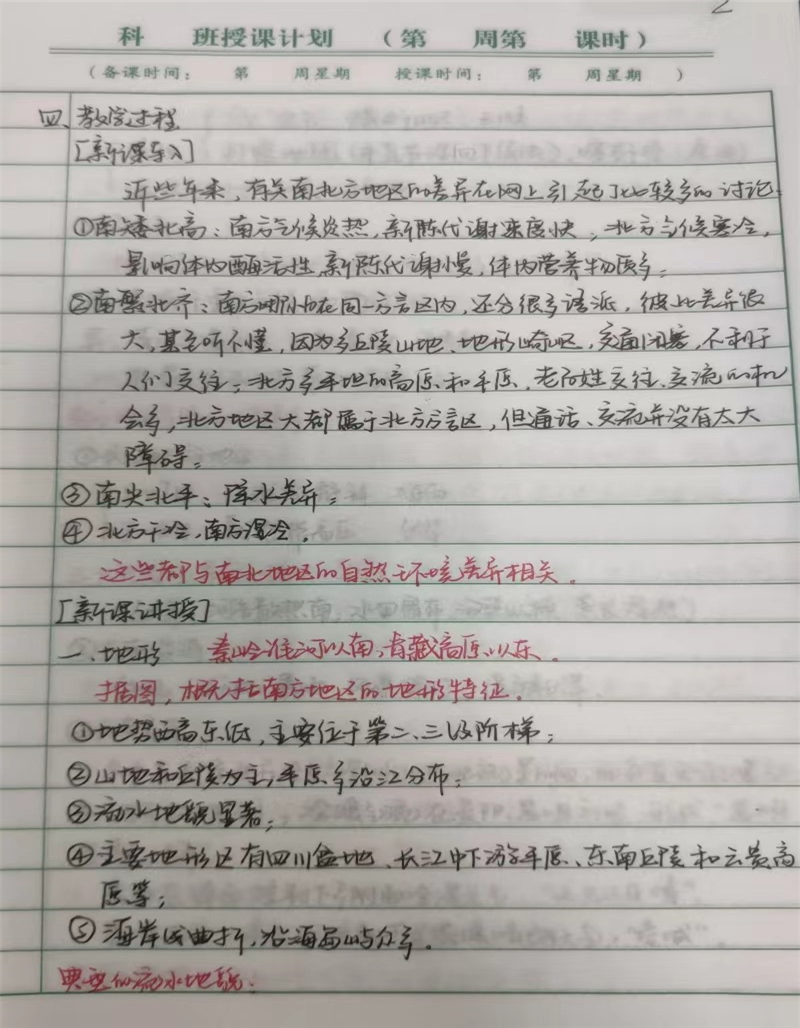 2
科 班授课计划 (第 周第 课时)
(备课时间: 第 周星期 授课时间: 第 周星期 )
四、教学过程
[新课导入]
近些年来,有关南北方地区的差异在网上引起了比较多的讨论:
①南矮北高:南方气候炎热,新陈代谢速度快;北方气候寒冷,
影响体内酶活性,新陈代谢慢,体内营养物质多;
②南繁北齐:南方哪怕在同一方言区内,还分很多语派,彼此差异很
大,甚至听不懂,因为多丘陵山地、地形崎岖,交通闭塞,不利于
人们交往;北方多平坦的高原和平原,老百姓交往、交流的机
会多,北方地区大都属于北方方言区,但通话、交流并没有太大
障碍;
③南尖北平:降水差异;
④北方干冷,南方湿冷.
这些都与南北地区的自然环境差异相关.
[新课讲授]
一、地形 秦岭淮河以南,青藏高原以东.
据图,概括南方地区的地形特征.
①地势西高东低,主要位于第二、三级阶梯;
②山地和丘陵为主,平原多沿江分布;
③流水地貌显著;
④主要地形区有四川盆地、长江中下游平原、东南丘陵和云贵高
原等;
⑤海岸线曲折,沿海岛屿众多.
典型的流水地貌: